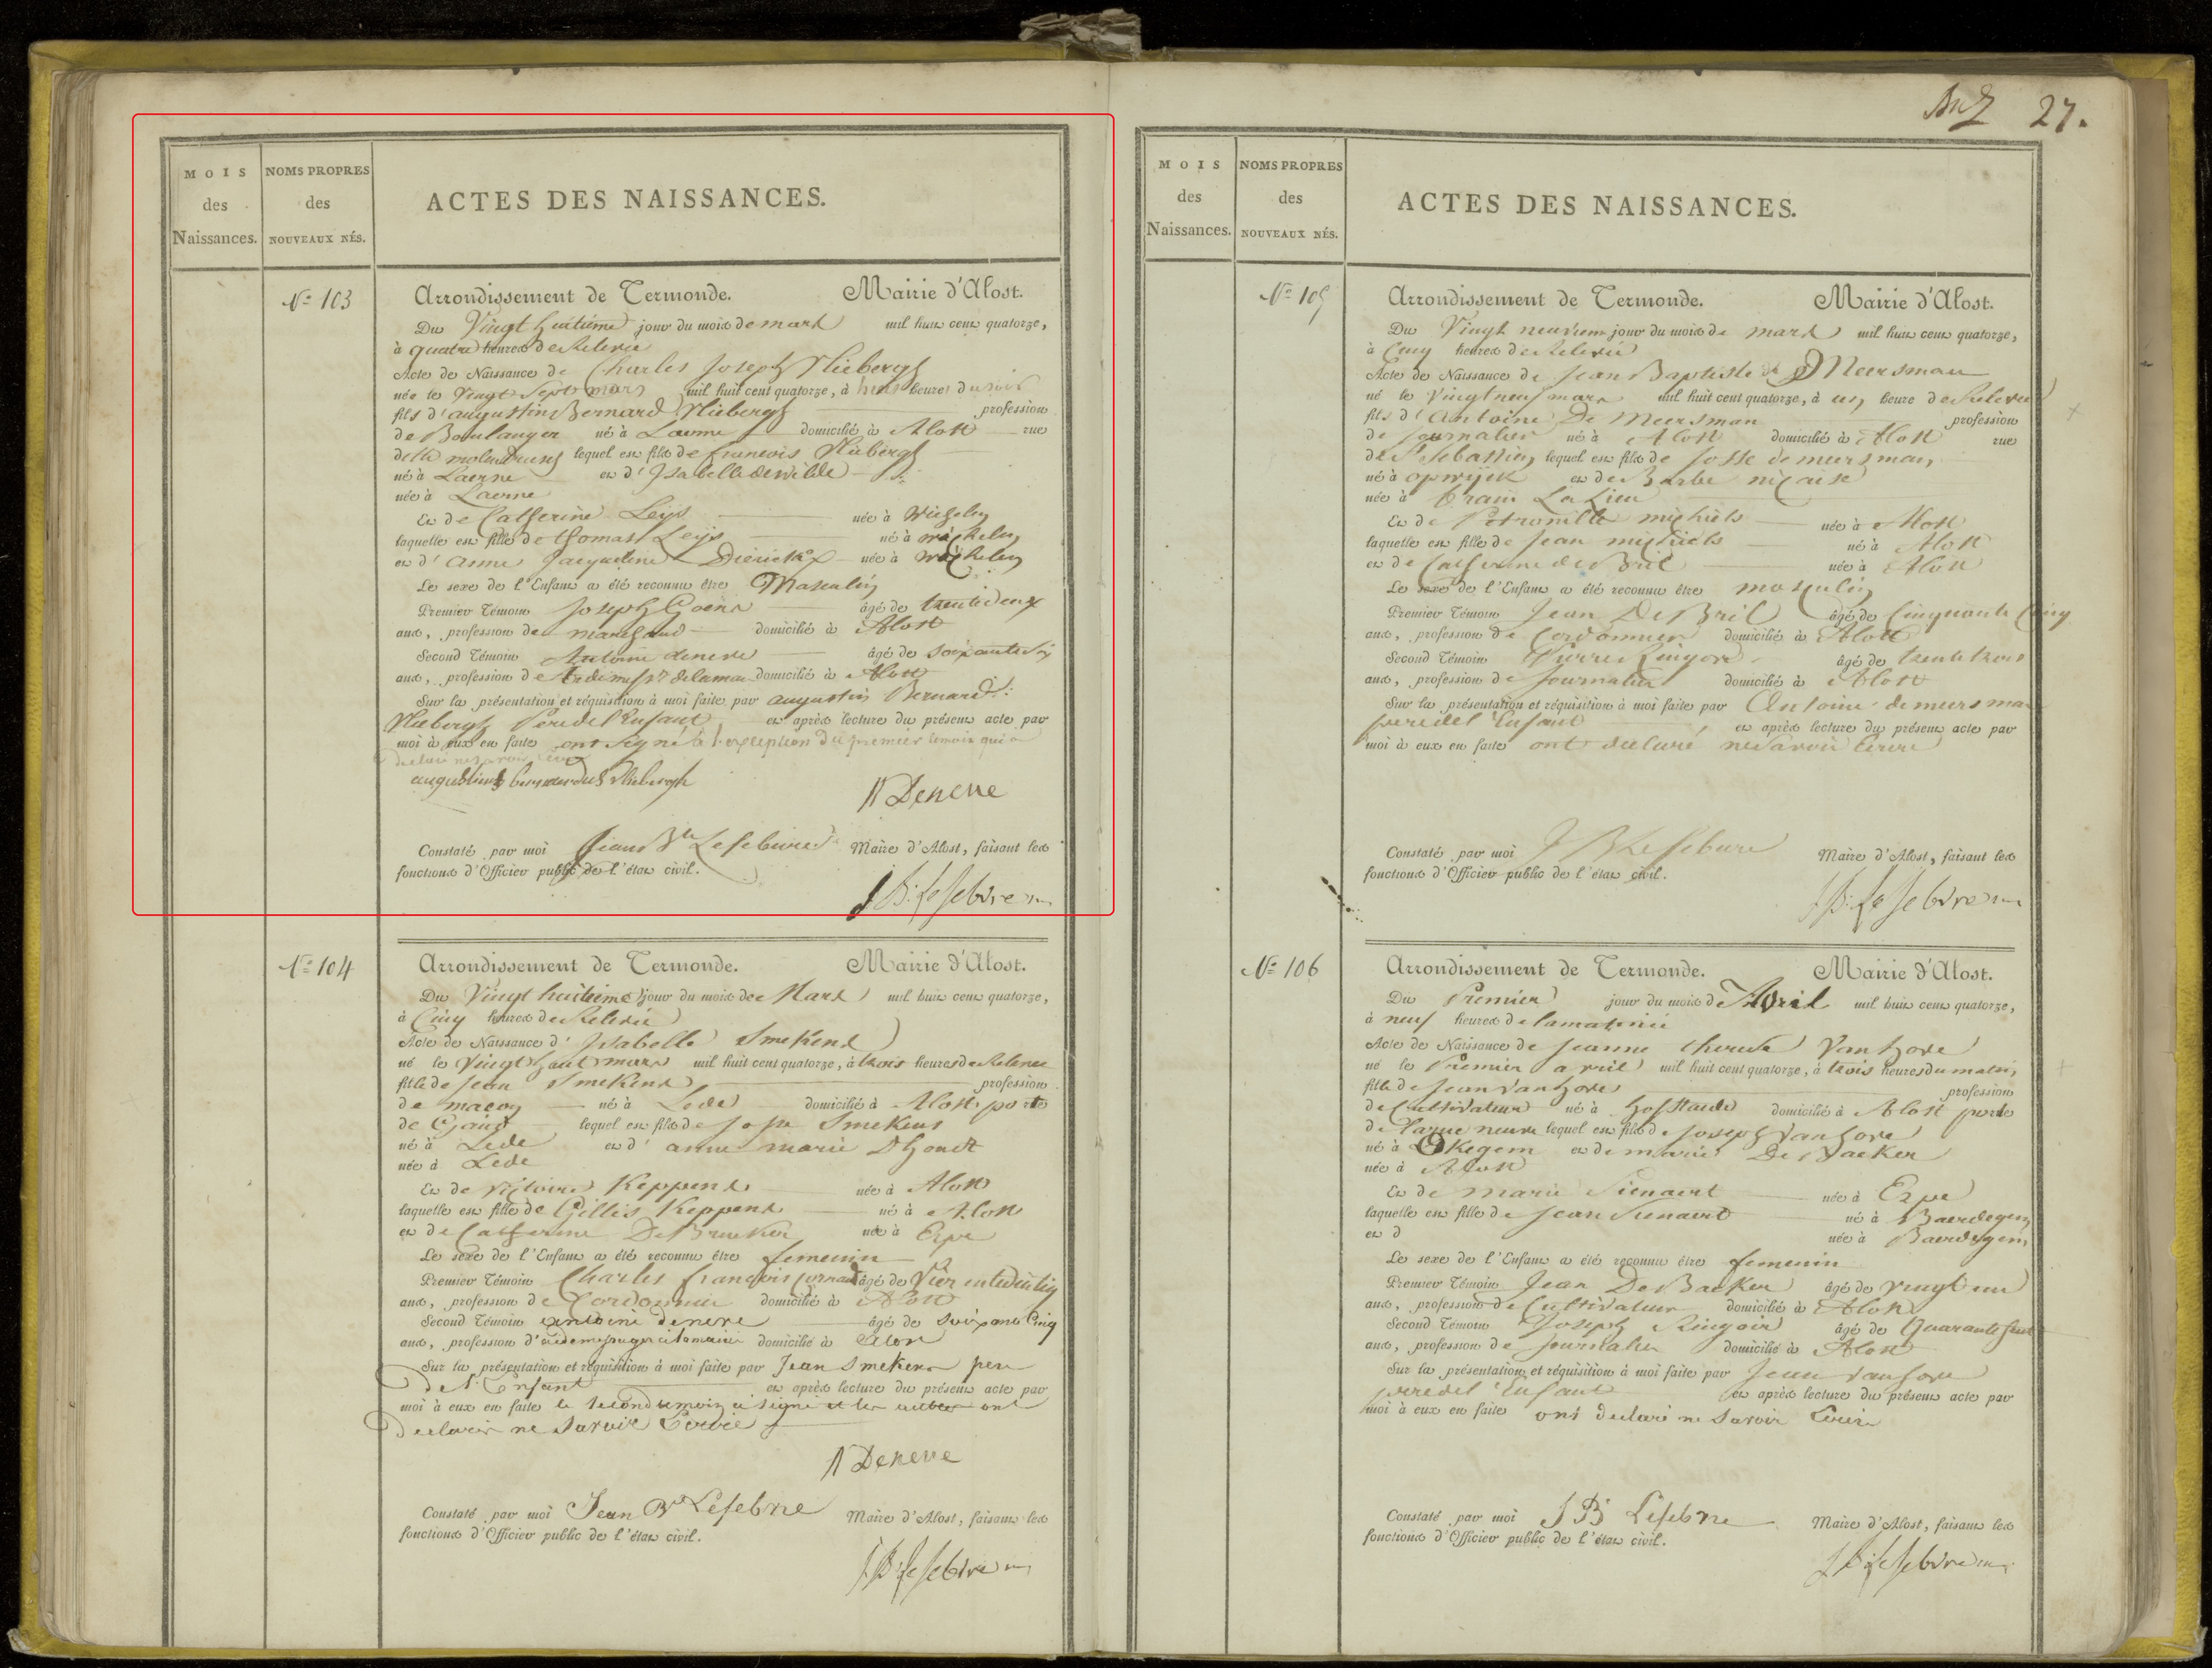 An 7 27.
MOIS des Naissances.
NOMS PROPRES des NOUVEAUX NÉS.
ACTES DES NAISSANCES.
N° 103
Arrondissement de Termonde. Mairie d'Alost.
Du Vingt huitieme jour du mois de mars mil huit cent quatorze,
à quatre heures de Relevée
Acte de Naissance de Charles Joseph Vlieberg
née le Vingt Sept mars mil huit cent quatorze, à heures du soir
fils d'augustin Bernard Vliebergh profession
de Boulanger né à Laerne domicilié à Alost rue
lequel est fils de francois Vliebergh
né à Laerne et d'Isabella dewilde
née à Laerne
Et de Catherine Leys née à Wichelen
laquelle est fille de thomas Leys né à Wichelen
et d'anne Jacqueline Dierickx née à Wichelen
Le sexe de l'Enfant a été reconnu être Masculin
Premier Témoin Joseph Goens âgé de trente deux
ans, profession de marchand domicilié à Alost
Second Témoin Antoine deneve âgé de soixante six
ans, profession de domicilié à Alost
Sur la présentation et réquisition à moi faite par augustin Bernard
Vliebergh Pere de l'Enfant et après lecture du présent acte par
moi à eux en faite ont signé à l'exception du premier temoin qui a
declaré ne savoir ecrire
augustinus bernardus Vliebergh
A Deneve
Constaté par moi Jean Bte Lefebure Maire d'Alost, faisant les
fonctions d'Officier public de l'état civil.
J B: Lefebvre m
N° 104
Arrondissement de Termonde. Mairie d'Alost.
Du Vingt huitieme jour du mois de Mars mil huit cent quatorze,
à Cinq heures de Relevée
Acte de Naissance d'Isabelle Smekens
né le Vingt huit mars mil huit cent quatorze, à trois heures de Relevée
fille de Jean Smekens profession
de maçon né à Lede domicilié à Alost porte
de Gand lequel est fils de Josse Smekens
né à Lede et d'anne marie Dhondt
née à Lede
Et de Victoire Keppens née à Alost
laquelle est fille de Gillis Keppens né à Alost
et de Catherine De Brucker née à Erpe
Le sexe de l'Enfant a été reconnu être femenin
Premier Témoin Charles françois âgé de
ans, profession de Cordonnier domicilié à Alost
Second Témoin antoine deneve âgé de soixante Cinq
ans, profession d' domicilié à Alost
Sur la présentation et réquisition à moi faite par Jean Smekens pere
de l'Enfant et après lecture du présent acte par
moi à eux en faite le second temoin a signé et les autres ont
declarer ne savoir Ecrire
A Deneve
Constaté par moi Jean Bte Lefebvre Maire d'Alost, faisant les
fonctions d'Officier public de l'état civil.
J B: Lefebvre m
MOIS des Naissances.
NOMS PROPRES des NOUVEAUX NÉS.
ACTES DES NAISSANCES.
N° 105
Arrondissement de Termonde. Mairie d'Alost.
Du Vingt neuvieme jour du mois de mars mil huit cent quatorze,
à Cinq heures de Relevée
Acte de Naissance de Jean Baptiste De Meersman
né le Vingt neuf mars mil huit cent quatorze, à un heure de Relevée
fils d'Antoine De Meersman profession
de journalier né à Alost domicilié à Alost rue
de St Sebastien lequel est fils de Josse de meersman
né à opwijck et de Barbe niçaise
née à
Et de Petronille michiels née à Alost
laquelle est fille de Jean michiels né à Alost
et de Catherine de Bril née à Alost
Le sexe de l'Enfant a été reconnu être masculin
Premier Témoin Jean De Bril âgé de Cinquante Cinq
ans, profession de Cordonnier domicilié à Alost
Second Témoin Pierre Ringoir âgé de trente trois
ans, profession de Journalier domicilié à Alost
Sur la présentation et réquisition à moi faite par Antoine demeersman
pere de l'Enfant et après lecture du présent acte par
moi à eux en faite ont declaré ne savoir Ecrire
Constaté par moi J B Lefebure Maire d'Alost, faisant les
fonctions d'Officier public de l'état civil.
J B: Lefebvre m
N° 106
Arrondissement de Termonde. Mairie d'Alost.
Du Premier jour du mois d'Avril mil huit cent quatorze,
à neuf heures de la matinée
Acte de Naissance de Jeanne therese Vanhove
né le Premier avril mil huit cent quatorze, à trois heures du matin
fille de Jean Vanhove profession
de Cultivateur né à Hofstade domicilié à Alost porte
de la rue neuve lequel est fils de Joseph Vanhove
né à Okegem et de marie De Backer
née à Alost
Et de marie Sienaert née à Erpe
laquelle est fille de Jean Sienaert né à Baerdegem
et d née à Baerdegem
Le sexe de l'Enfant a été reconnu être femenin
Premier Témoin Jean De Backer âgé de vingt un
ans, profession de Cultivateur domicilié à Alost
Second Témoin Joseph Ringoir âgé de Quarante
ans, profession de Journalier domicilié à Alost
Sur la présentation et réquisition à moi faite par Jean Vanhove
pere de l'Enfant et après lecture du présent acte par
moi à eux en faite ont declaré ne savoir Ecrire
Constaté par moi J B Lefebvre Maire d'Alost, faisant les
fonctions d'Officier public de l'état civil.
J B: Lefebvre m